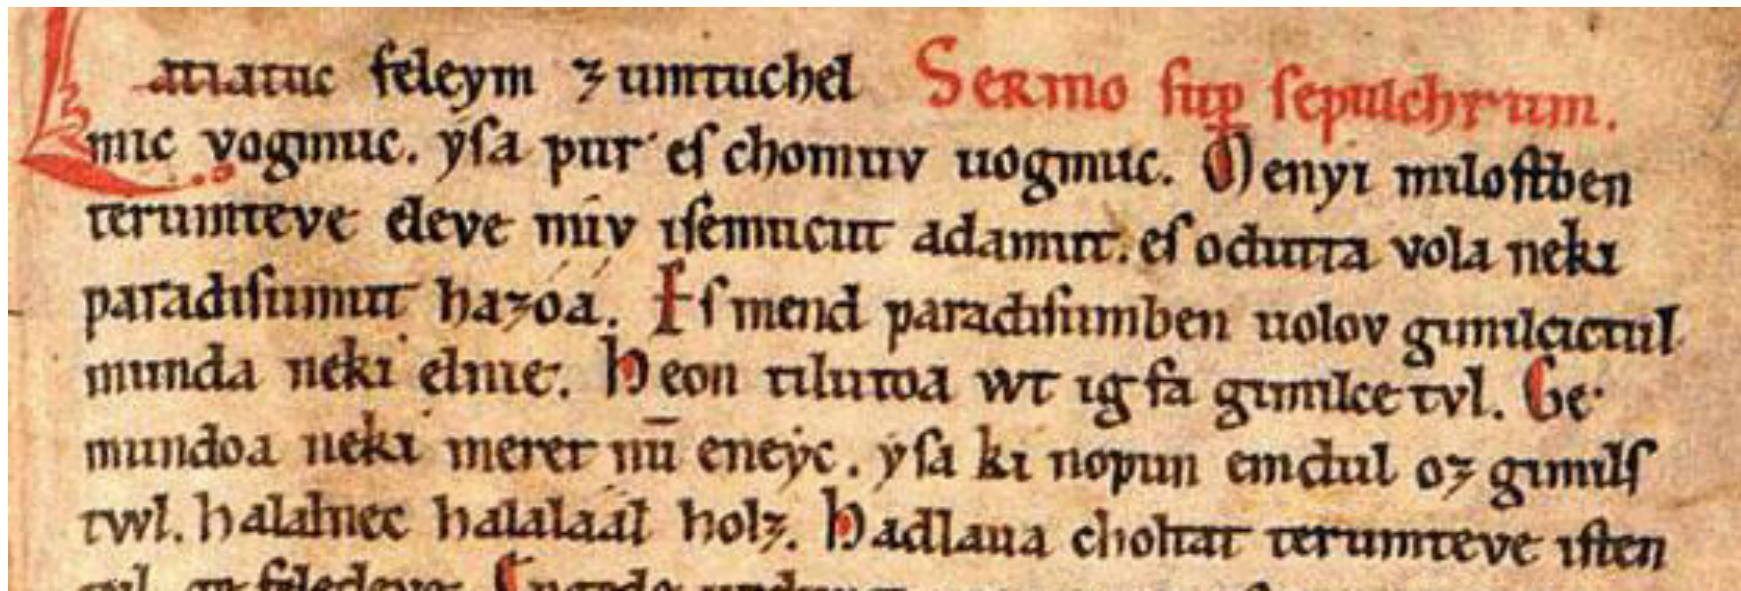 Latiatuc feleym zumtuchel Sermo ſup ſepulchrum.
mic vogmuc. yſa pur eſ chomuv uogmuc. Menyi miloſtben
terumteve eleve miv iſemucut adamut. eſ odutta vola neki
paradiſumut hazóá. Eſ mend paradiſumben uolov gimilcictul
munda neki elnie. Heon tilutoa wt ig fa gimilce tvl. Ge
mundoa neki meret nū eneyc. yſa ki nopun emdul oz gimilſ
twl. halalnec halaláál holz. Hadlaua choltat terumteve iſten